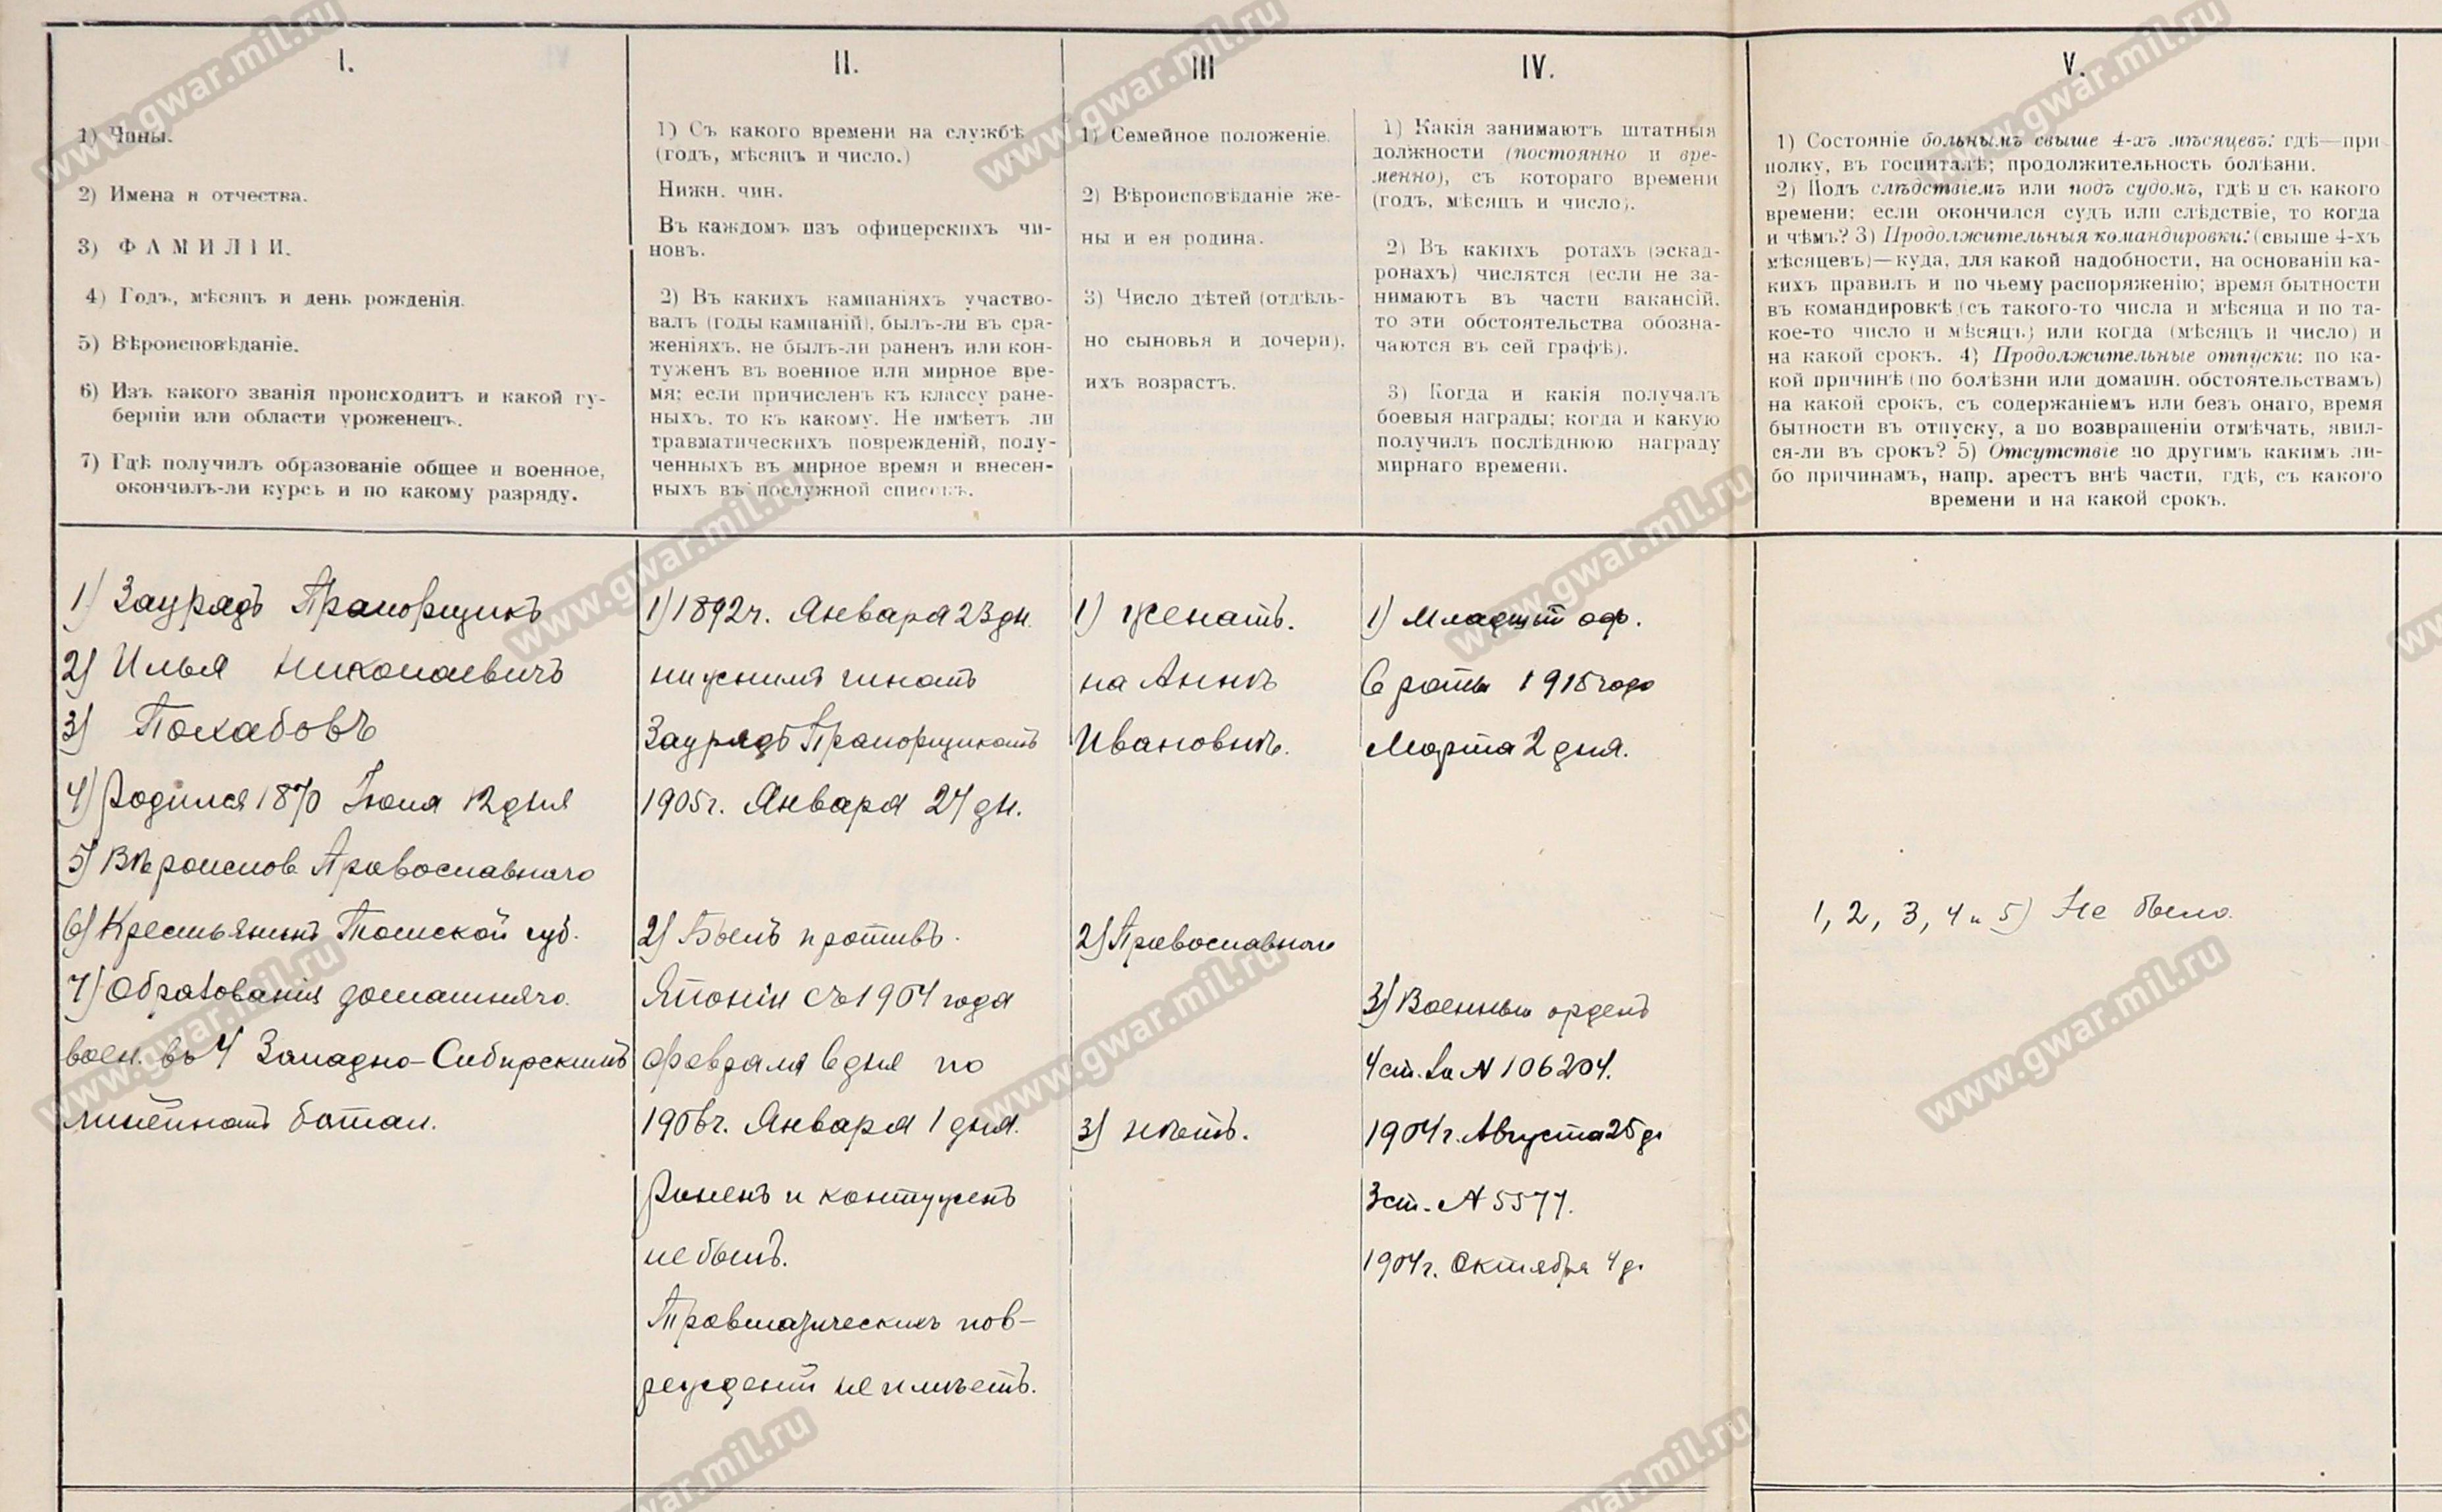 I.
1) Чины.
2) Имена и отчества.
3) ФАМИЛІИ.
4) Годъ, мѣсяцъ и день рожденія.
5) Вѣроисповѣданіе.
6) Изъ какого званія происходитъ и какой гу-
берніи или области уроженецъ.
7) Гдѣ получилъ образованіе общее и военное,
окончилъ-ли курсъ и по какому разряду.
II.
1) Съ какого времени на службѣ
(годъ, мѣсяцъ и число.)
Нижн. чин.
Въ каждомъ изъ офицерскихъ чи-
новъ.
2) Въ какихъ кампаніяхъ участво-
валъ (годы кампаній), былъ-ли въ сра-
женіяхъ, не былъ-ли раненъ или кон-
туженъ въ военное или мирное вре-
мя; если причисленъ къ классу ране-
ныхъ, то къ какому. Не имѣетъ ли
травматическихъ поврежденій, полу-
ченныхъ въ мирное время и внесен-
ныхъ въ послужной списокъ.
III
1) Семейное положеніе.
2) Вѣроисповѣданіе же-
ны и ея родина.
3) Число дѣтей (отдѣль-
но сыновья и дочери),
ихъ возрастъ.
IV.
1) Какія занимаютъ штатныя
должности (постоянно и вре-
менно), съ котораго времени
(годъ, мѣсяцъ и число).
2) Въ какихъ ротахъ (эскад-
ронахъ) числятся (если не за-
нимаютъ въ части вакансій,
то эти обстоятельства обозна-
чаются въ сей графѣ).
3) Когда и какія получалъ
боевыя награды; когда и какую
получилъ послѣднюю награду
мирнаго времени.
V.
1) Состояніе больнымъ свыше 4-хъ мѣсяцевъ: гдѣ—при
полку, въ госпиталѣ; продолжительность болѣзни.
2) Подъ слѣдствіемъ или подъ судомъ, гдѣ и съ какого
времени; если окончился судъ или слѣдствіе, то когда
и чѣмъ? 3) Продолжительныя командировки: (свыше 4-хъ
мѣсяцевъ)—куда, для какой надобности, на основаніи ка-
кихъ правилъ и по чьему распоряженію; время бытности
въ командировкѣ (съ такого-то числа и мѣсяца и по та-
кое-то число и мѣсяцъ) или когда (мѣсяцъ и число) и
на какой срокъ. 4) Продолжительные отпуски: по ка-
кой причинѣ (по болѣзни или домашн. обстоятельствамъ)
на какой срокъ, съ содержаніемъ или безъ онаго, время
бытности въ отпуску, а по возвращеніи отмѣчать, явил-
ся-ли въ срокъ? 5) Отсутствіе по другимъ какимъ ли-
бо причинамъ, напр. арестъ внѣ части, гдѣ, съ какого
времени и на какой срокъ.
1) Заурядъ Прапорщикъ
2) Илья Николаевичъ
3) Похабовъ
4) Родился 1870 Іюля 12 дня
5) Вѣроиспов Православнаго
6) Крестьянинъ Томской губ.
7) Образованія домашняго.
воен. въ 4 Западно-Сибирскимъ
линейномъ батал.
1) 1892г. Января 23 дн.
нижнимъ чиномъ
Заурядъ Прапорщикомъ
1905г. Января 24 дн.
2) Былъ противъ.
Японіи съ 1904 года
февраля 6 дня по
1906г. Января 1 дня.
Раненъ и контуженъ
не былъ.
Травматическихъ пов-
режденій не имѣетъ.
1) Женатъ.
на Аннѣ
Ивановнѣ.
2) Православнаго
3) нѣтъ.
1) Младшій оф.
6 роты 1915 года
Марта 2 дня.
3) Военный орденъ
4 ст. за № 106204.
1904г. Августа 25 д.
3 ст. № 5577.
1904г. Октября 4 д.
1, 2, 3, 4 и 5) Не было.
www.gwar.mil.ru